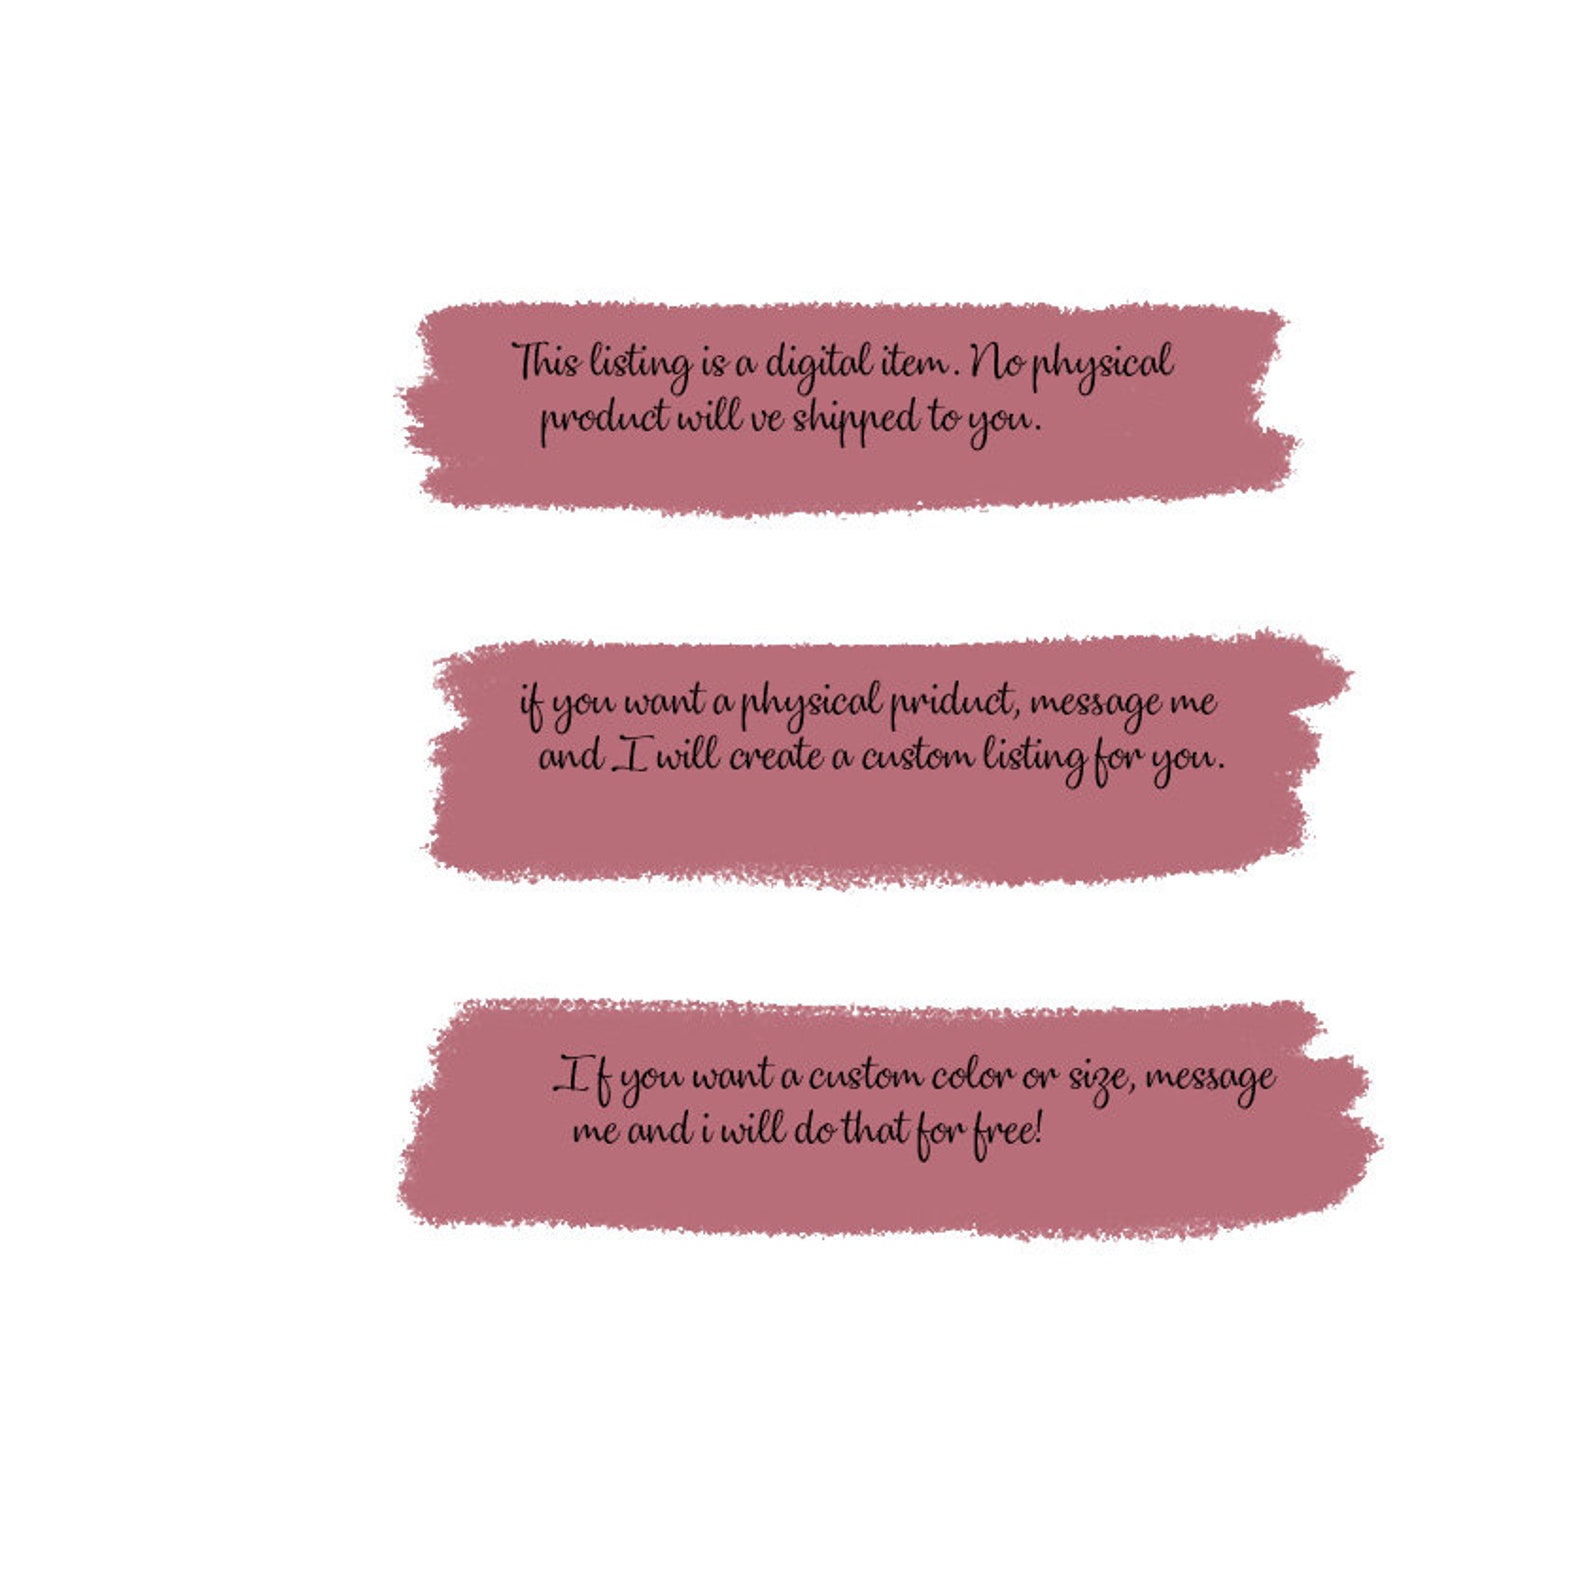 This listing is a digital item. No physical
product will ve shipped to you.
if you want a physical priduct, message me
and I will create a custom listing for you.
If you want a custom color or size, message
me and i will do that for free!